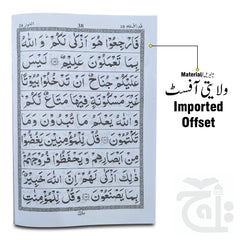 قد افلح ١٨
38
النور ٢٤
فَارْجِعُوْا هُوَ اَزْكٰى لَكُمْ ؕ وَاللّٰهُ
بِمَا تَعْمَلُوْنَ عَلِيْمٌ ۝ لَيْسَ
عَلَيْكُمْ جُنَاحٌ اَنْ تَدْخُلُوْا بُيُوْتًا
غَيْرَ مَسْكُوْنَةٍ فِيْهَا مَتَاعٌ لَّكُمْ ؕ
وَاللّٰهُ يَعْلَمُ مَا تُبْدُوْنَ وَمَا
تَكْتُمُوْنَ ۝ قُلْ لِّلْمُؤْمِنِيْنَ يَغُضُّوْا
مِنْ اَبْصَارِهِمْ وَيَحْفَظُوْا فُرُوْجَهُمْ ؕ
ذٰلِكَ اَزْكٰى لَهُمْ ؕ اِنَّ اللّٰهَ خَبِيْرٌۢ
بِمَا يَصْنَعُوْنَ ۝ وَقُلْ لِّلْمُؤْمِنٰتِ
Material میٹریل
ولایتی آفسٹ
Imported
Offset